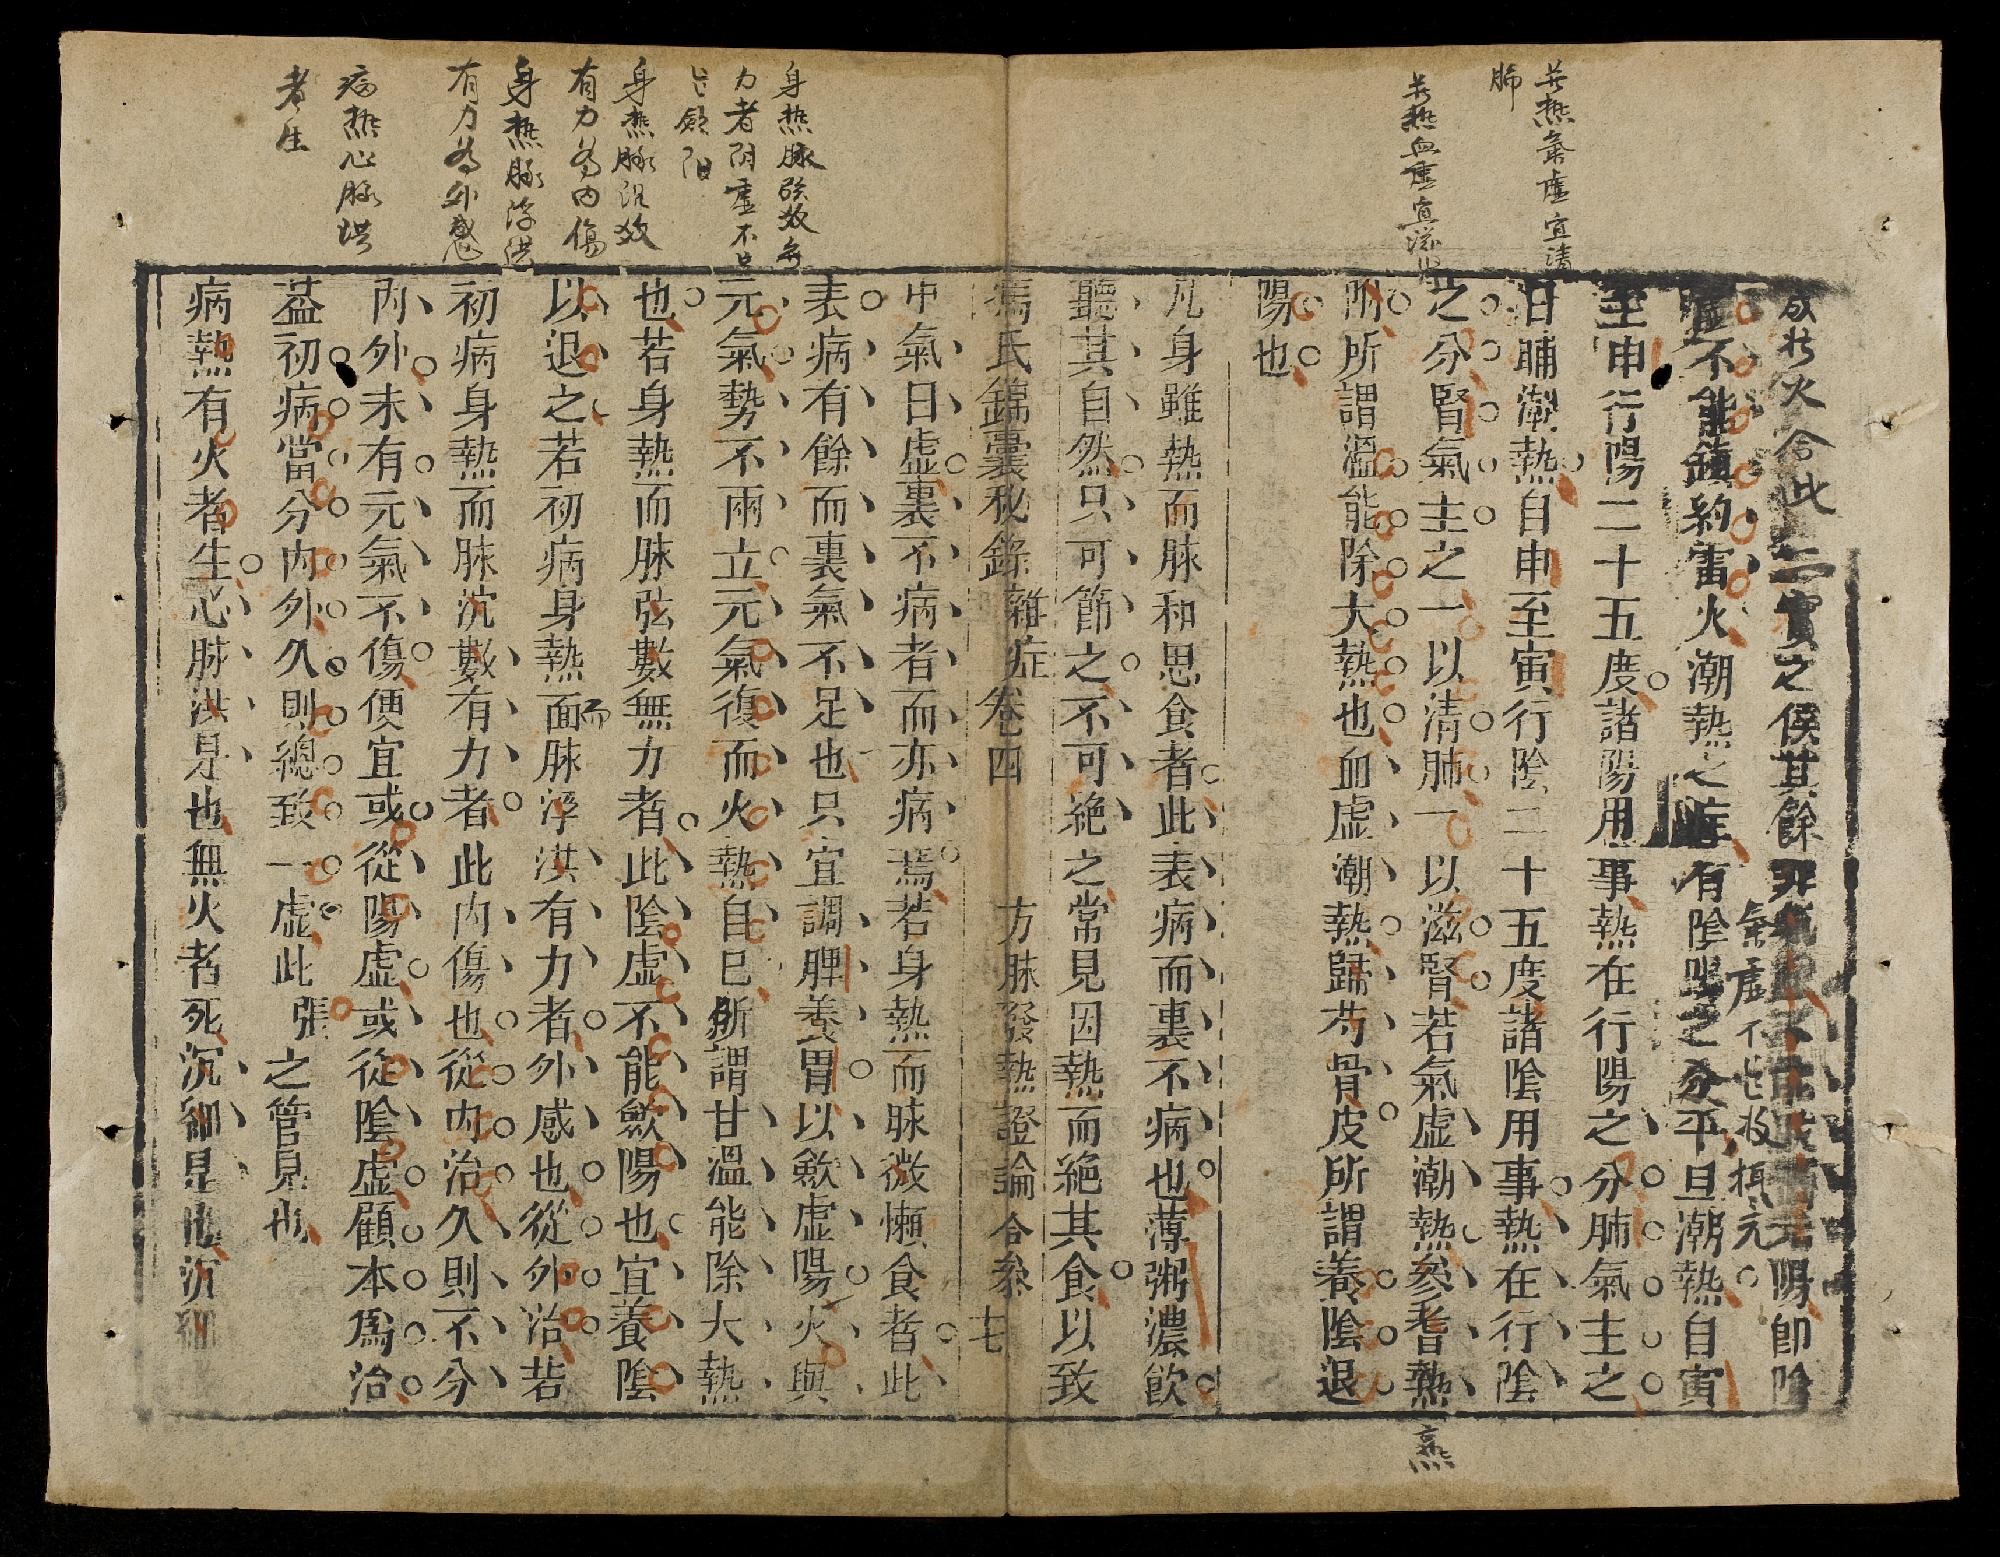 若熱氣虛宜清
肺
若熱血虛宜滋
成於火合此二實之侯其餘 氣虛不能收攝元陽即陰
虛不能鎮約雷火潮熱之症有陰陽之分平旦潮熱自寅
至申行陽二十五度諸陽用事熱在行陽之分肺氣主之
日晡潮熱自申至寅行陰二十五度諸陰用事熱在行陰
之分腎氣主之一以清肺一以滋腎若氣虛潮熱參耆熟
附所謂溫能除大熱也血虛潮熱歸芍骨皮所謂養陰退
陽也
凡身雖熱而脉和思食者此表病而裏不病也薄粥濃飲
聽其自然只可節之不可絕之常見因熱而絕其食以致
馮氏錦囊秘錄 雜症卷四 方脉發熱證論合參 七
身熱脉弦数無
力者阴虚不
能歛阳
身熱脉沉数
有力為内傷
身熱脉浮洪
有力為外感
病熱心脉洪
者生
中氣日虛裏不病者而亦病焉若身熱而脉微懶食者此
表病有餘而裏氣不足也只宜調脾養胃以歛虛陽火與
元氣勢不兩立元氣復而火熱自已所謂甘溫能除大熱
也若身熱而脉弦數無力者此陰虛不能歛陽也宜養陰
以退之若初病身熱面而脉浮洪有力者外感也從外治若
初病身熱而脉沉數有力者此内傷也從内治久則不分
内外未有元氣不傷便宜或從陽虛或從陰虛顧本爲治
葢初病當分内外久則總致一虛此張之管見也
病熱有火者生心脉洪是也無火者死沉細是也沉細
熱